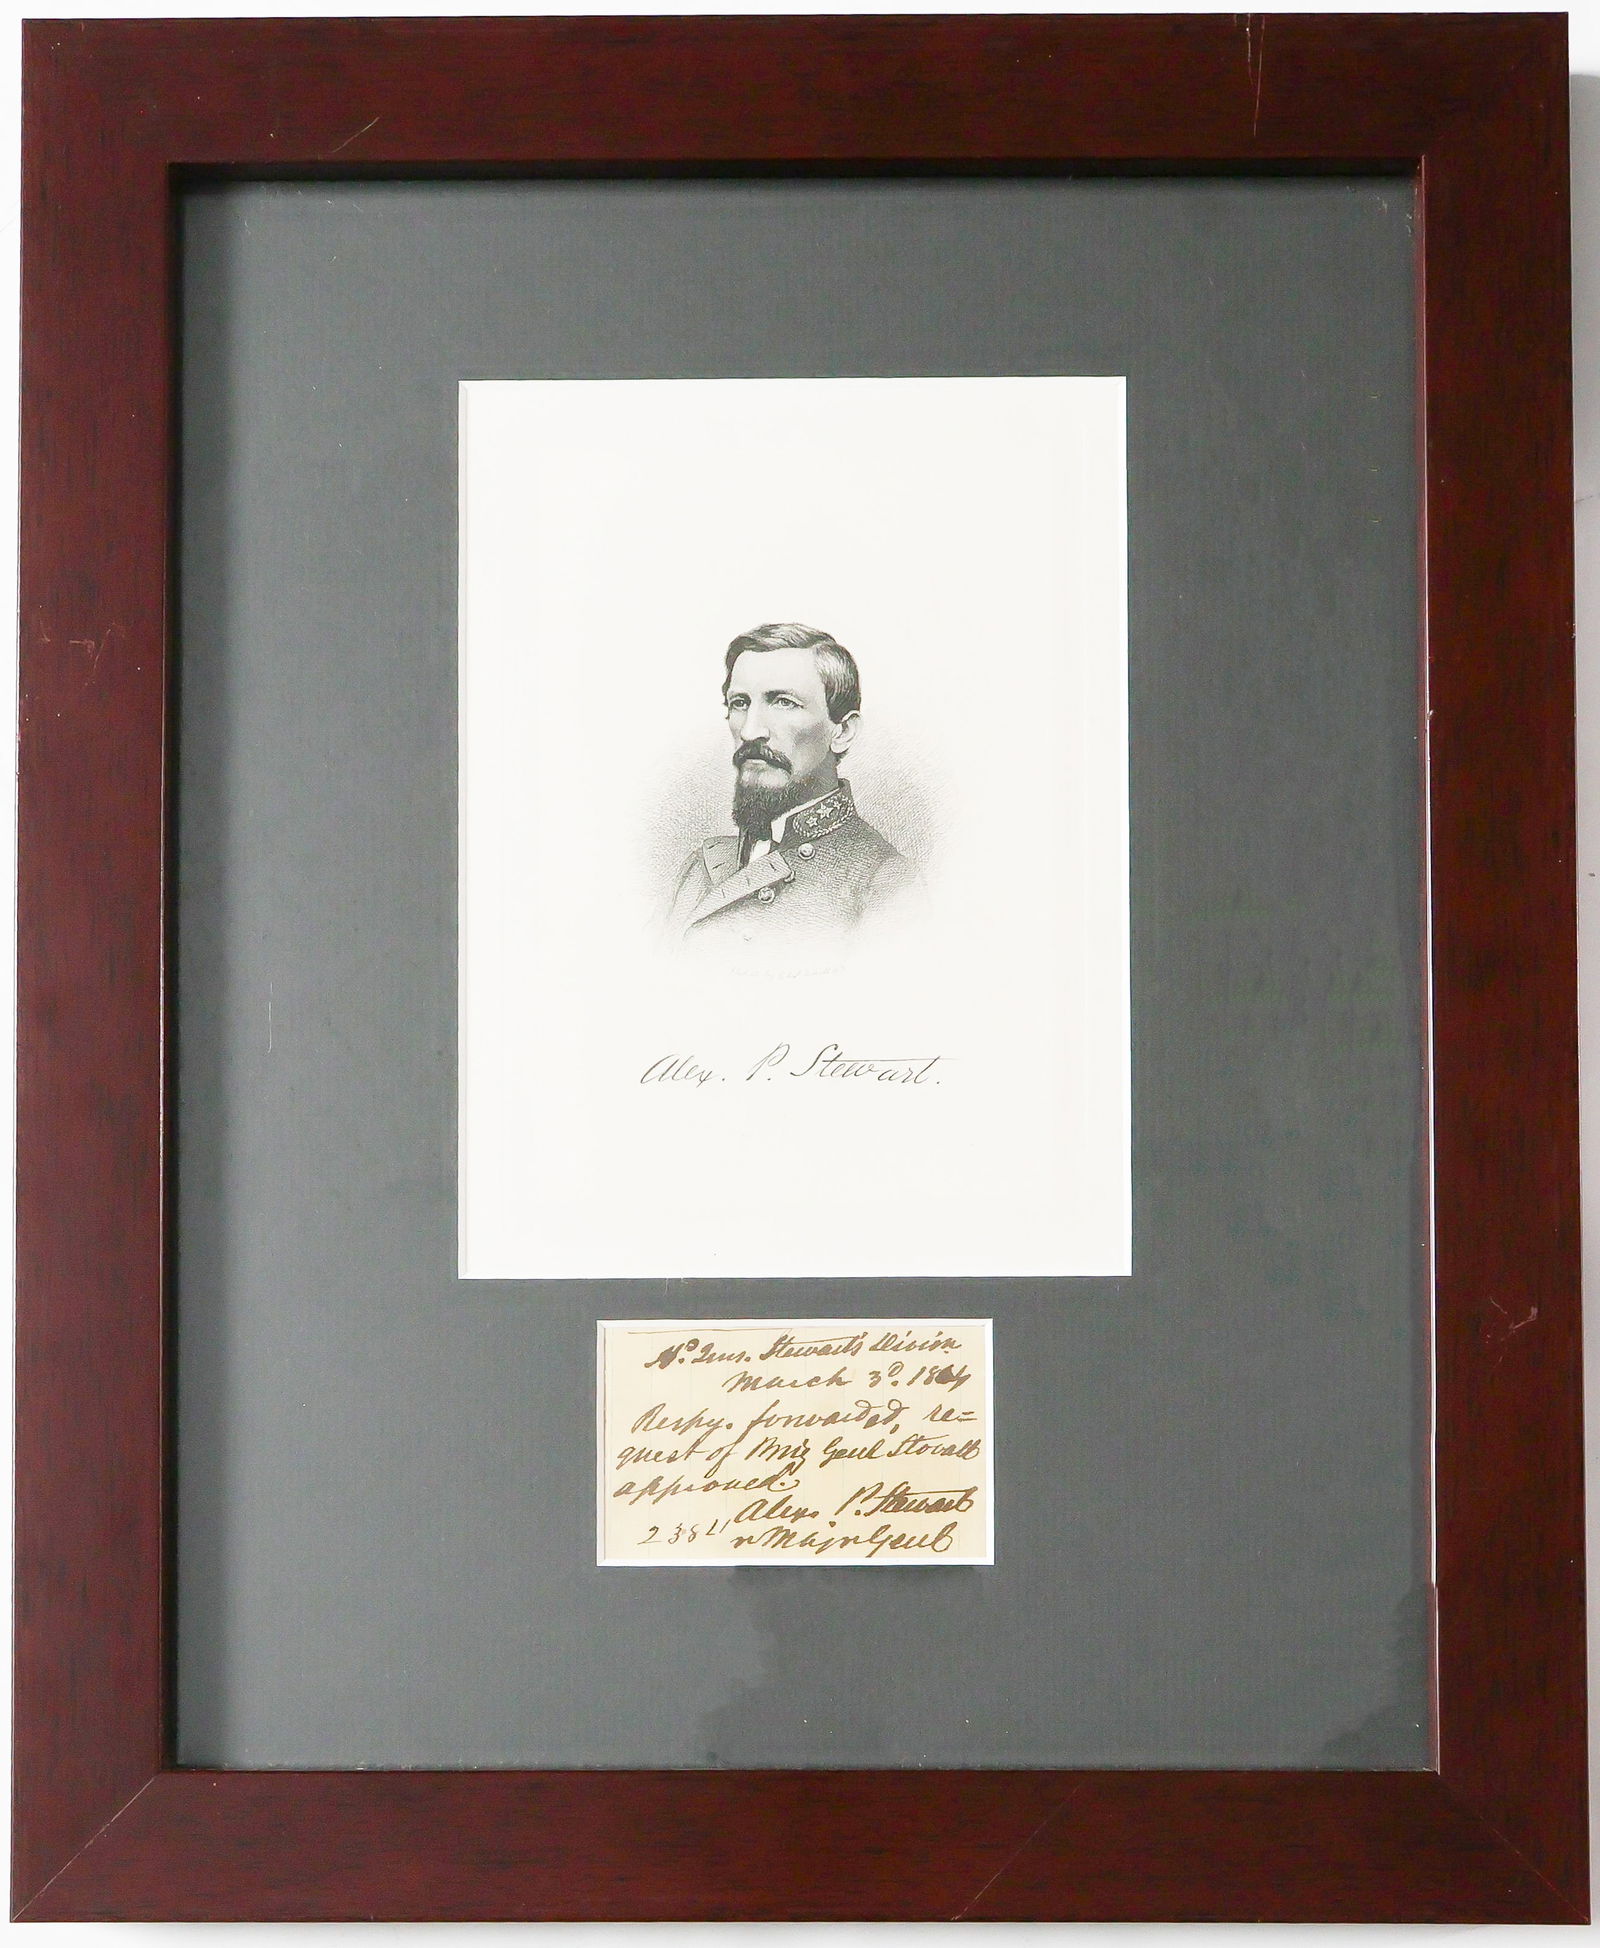 Alex. P. Stewart.
Hd. Qrs. Stewart's Division
March 3d. 1864
Respy. forwarded, re=
quest of Brig Genl Stovall
approved.
Alex. P. Stewart
Majr Genl